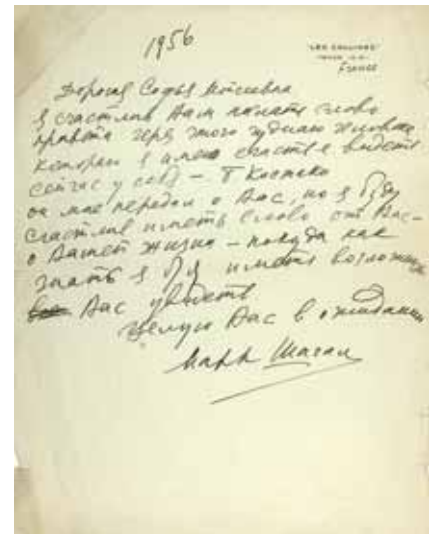 1956
"LES COLLINES"
VENCE (A.M.)
France
Дорогая Софья Моисеевна
я счастлив Вам послать слово
привета чрез этого чудного человека
которого я имею счастье видеть
сейчас у себя – Г Костаки
он мне передал о Вас, но я буду
счастлив иметь слово от Вас –
о Вашей жизни – покуда как
знать я буду иметь возможн
Вас увидеть
Целую Вас в ожидании
Марк Шагал